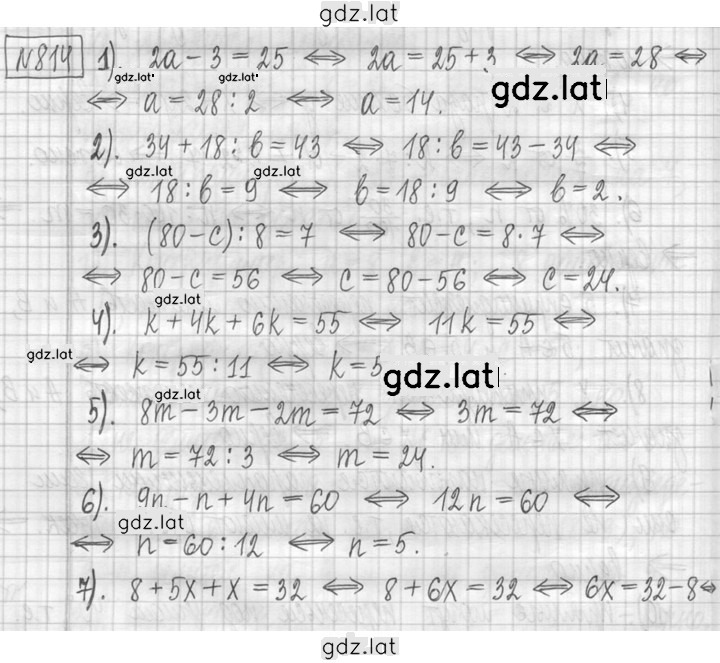 gdz.lat
№814 1). 2a - 3 = 25 ⟺ 2a = 25 + 3 ⟺ 2a = 28 ⟺
gdz.lat gdz.lat gdz.lat
⟺ a = 28 : 2 ⟺ a = 14.
2). 34 + 18 : b = 43 ⟺ 18 : b = 43 - 34 ⟺
gdz.lat gdz.lat
⟺ 18 : b = 9 ⟺ b = 18 : 9 ⟺ b = 2.
3). (80 - c) : 8 = 7 ⟺ 80 - c = 8 · 7 ⟺
⟺ 80 - c = 56 ⟺ c = 80 - 56 ⟺ c = 24.
gdz.lat
4). k + 4k + 6k = 55 ⟺ 11k = 55 ⟺
gdz.lat
⟺ k = 55 : 11 ⟺ k = 5
gdz.lat
gdz.lat
5). 8m - 3m - 2m = 72 ⟺ 3m = 72 ⟺
⟺ m = 72 : 3 ⟺ m = 24.
6). 9n - n + 4n = 60 ⟺ 12n = 60 ⟺
gdz.lat
⟺ n = 60 : 12 ⟺ n = 5.
7). 8 + 5x + x = 32 ⟺ 8 + 6x = 32 ⟺ 6x = 32 - 8 ⟺
gdz.lat